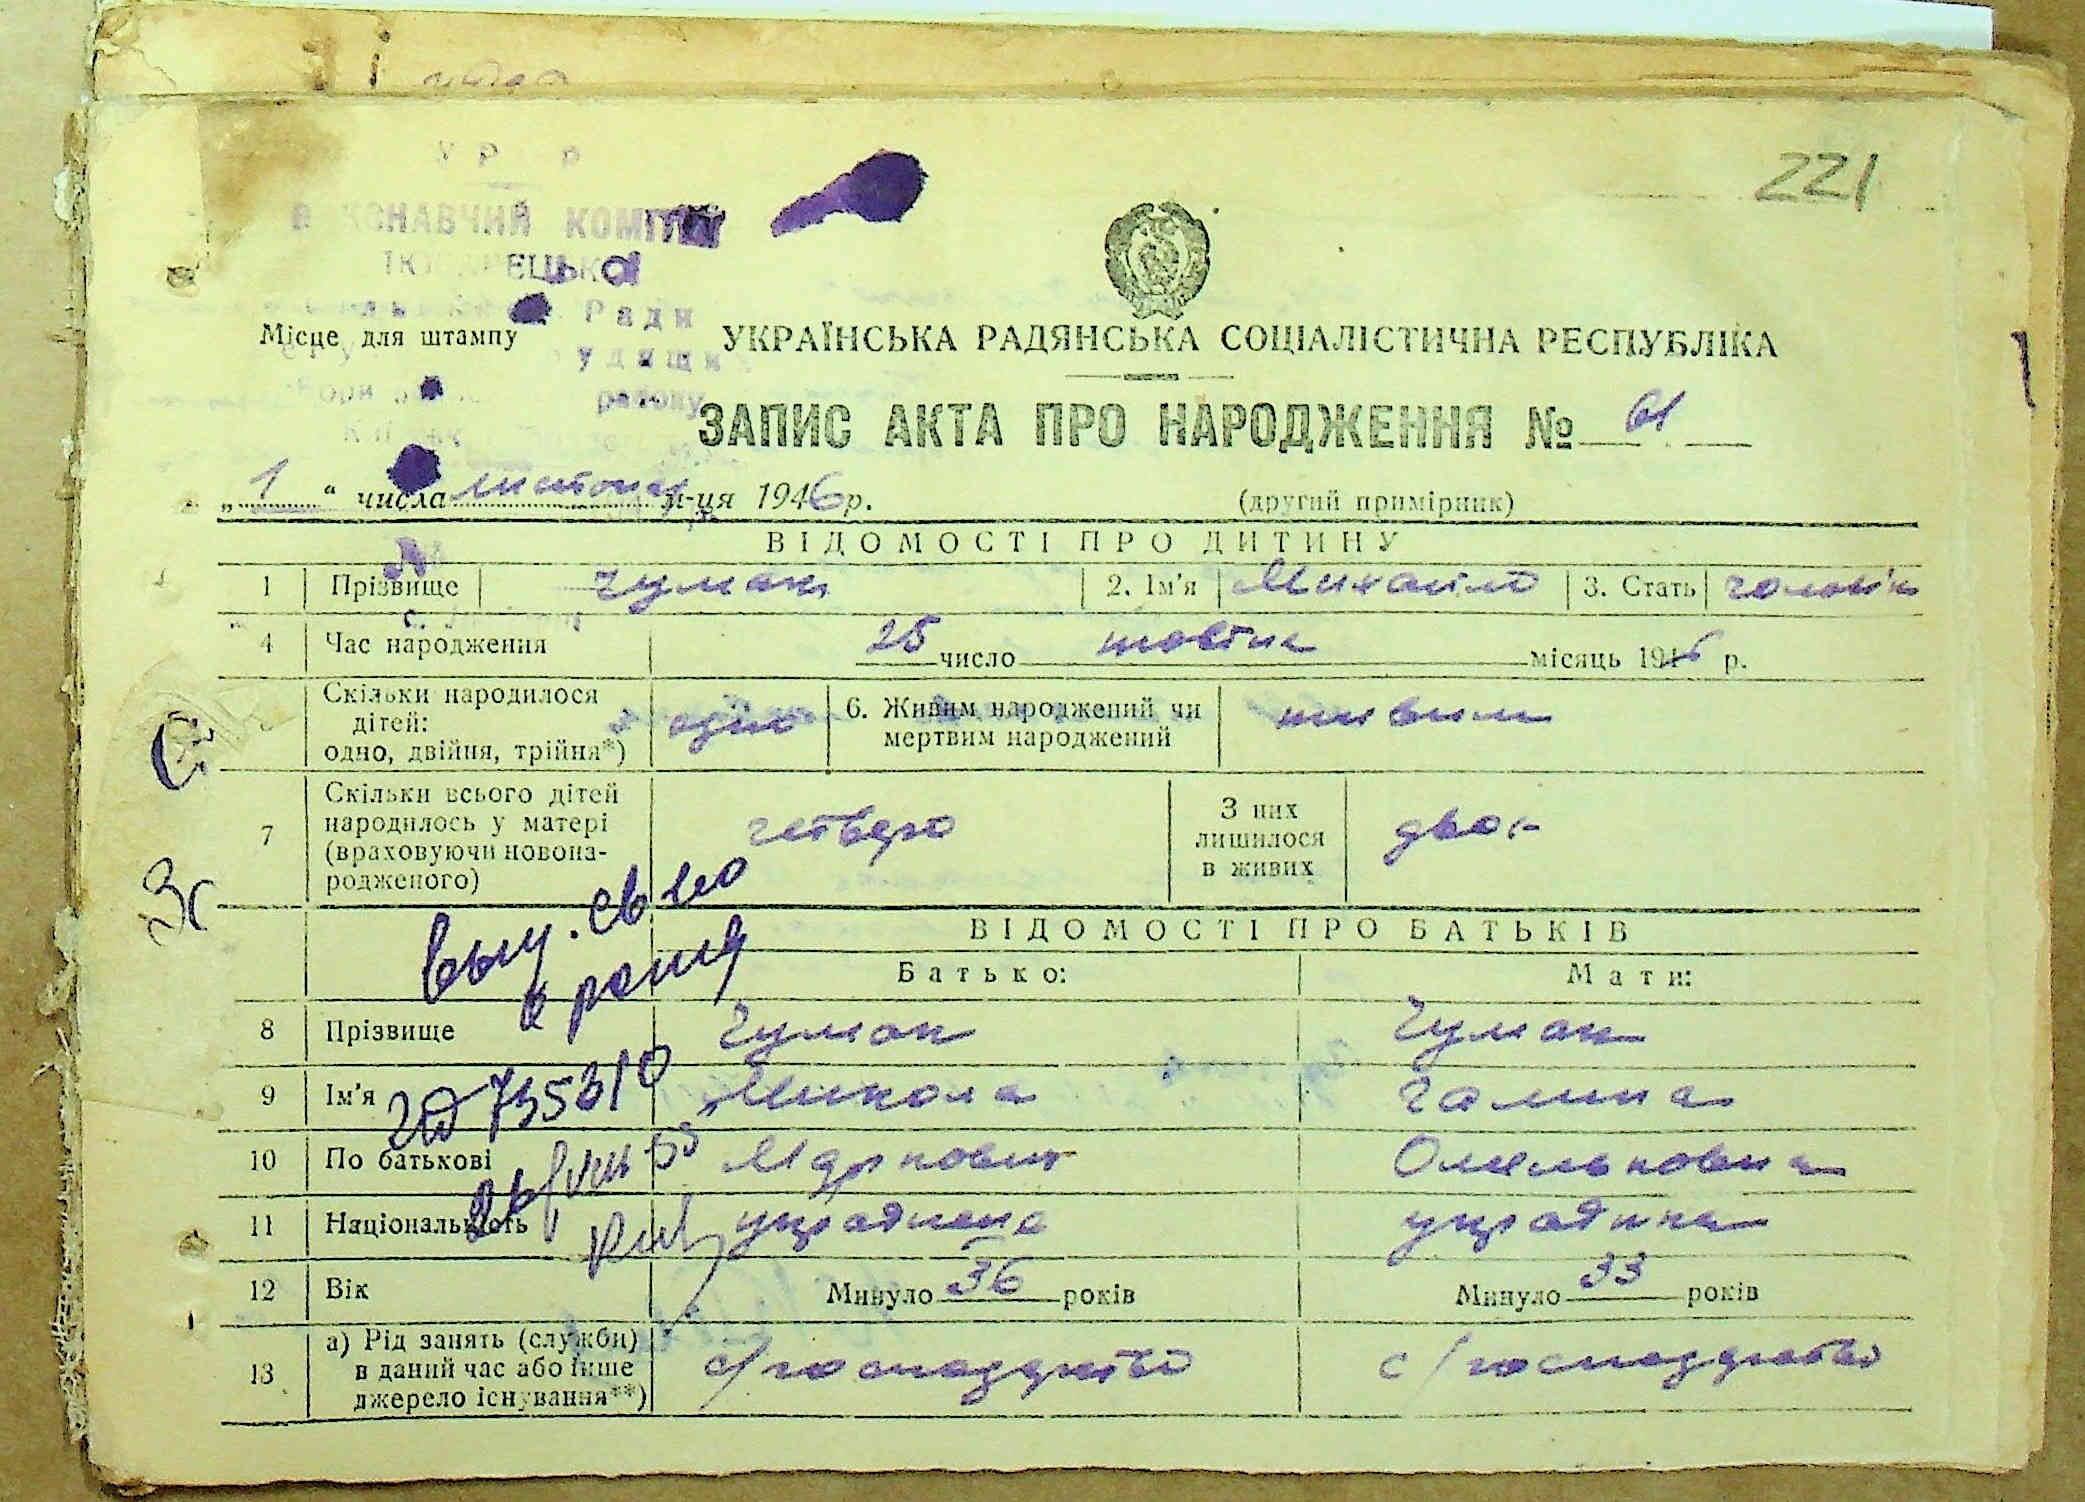 221
УР Р
КОНАВЧИЙ КОМІТЕТ
Ради
району
Місце для штампу
УКРАЇНСЬКА РАДЯНСЬКА СОЦІАЛІСТИЧНА РЕСПУБЛІКА
ЗАПИС АКТА ПРО НАРОДЖЕННЯ № 61
„1“ числа листопад м-ця 1946 р. (другий примірник)
ВІДОМОСТІ ПРО ДИТИНУ
1 Прізвище Чумак 2. Ім'я Михайло 3. Стать
4 Час народження 25 число жовтня місяць 1946 р.
Скільки народилося дітей: одно, двійня, трійня*) одно 6. Живим народжений чи мертвим народжений живим
7 Скільки всього дітей народилось у матері (враховуючи новонародженого) четверо З них лишилося в живих двоє
Зг
ВІДОМОСТІ ПРО БАТЬКІВ
Батько: Мати:
8 Прізвище Чумак Чумак
9 Ім'я Микола Галина
10 По батькові Маркович Омельковна
11 Національність українець українка
12 Вік Минуло 36 років Минуло 33 років
13 а) Рід занять (служби) в даний час або інше джерело існування**) с/господарство с/господарство
735310